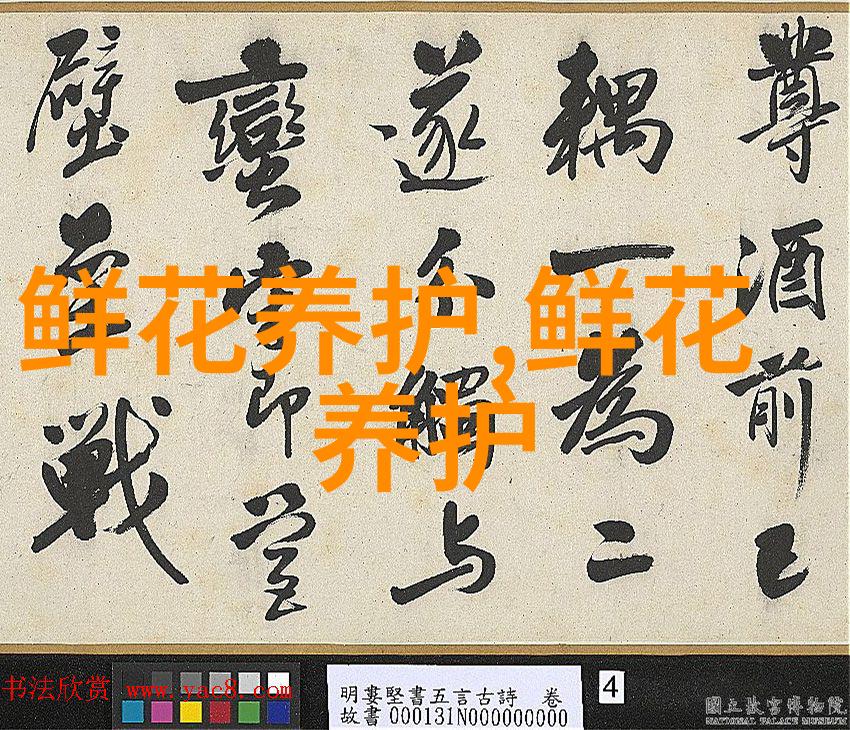 尊酒前已
耦一為二
遂分觸与
蠻即營
壁壘戰
鲜花养护,鲜花
养护
书法欣赏 www.yac8.com
明婁堅書五言古詩 卷
故書000131N000000000
4
國立故宮博物院
NATIONAL PALACE MUSEUM